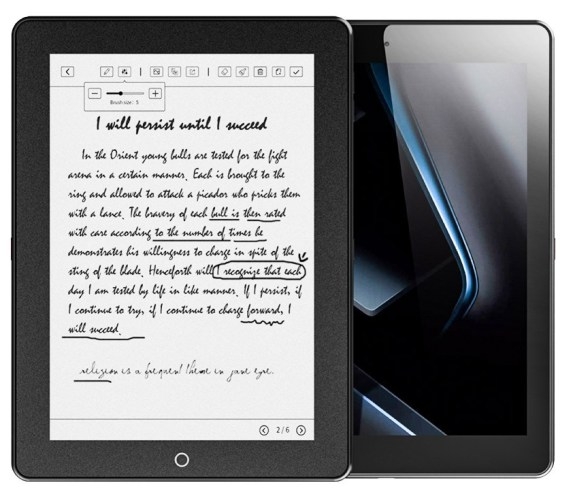 Brush size : 5
I will persist until I succeed
In the Orient young bulls are tested for the fight
arena in a certain manner. Each is brought to the
ring and allowed to attack a picador who pricks them
with a lance. The bravery of each bull is then rated
with care according to the number of times he
demonstrates his willingness to charge in spite of the
sting of the blade. Henceforth will I recognize that each
day I am tested by life in like manner. If I persist, if
I continue to try, if I continue to charge forward, I
will succeed.
religion is a frequent theme in jane eyre.
2/6